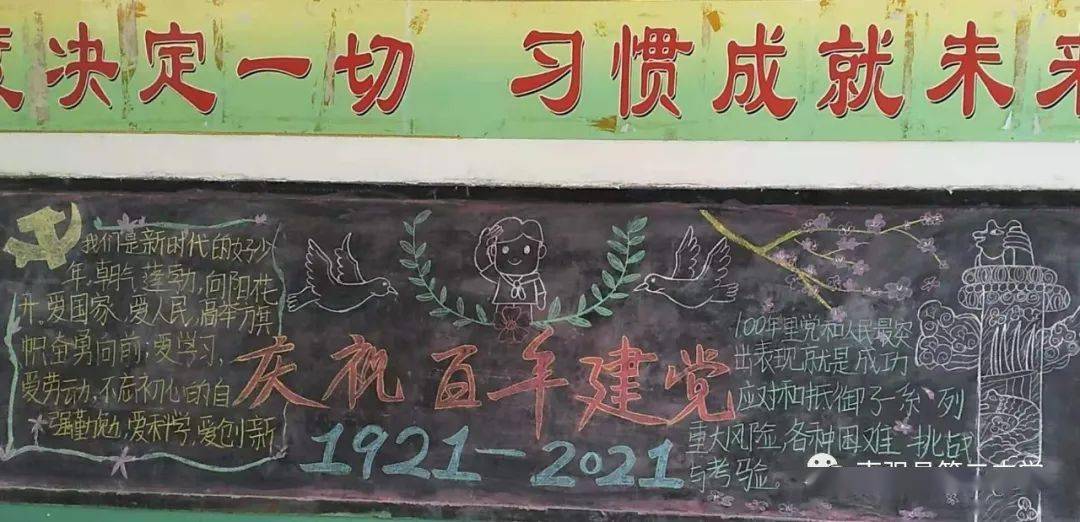 决定一切 习惯成就未来
我们是新时代的好少
年,朝气蓬勃,向阳花
开,爱国家,爱人民,高举万旗
帜奋勇向前;爱学习,
爱劳动,不忘初心的自
强勤勉,爱科学,爱创新
庆祝百年建党
1921-2021
100年里党和人民最突
出表现,就是成功
应对和抵御了系列
重大风险,各种困难挑战
与考验。